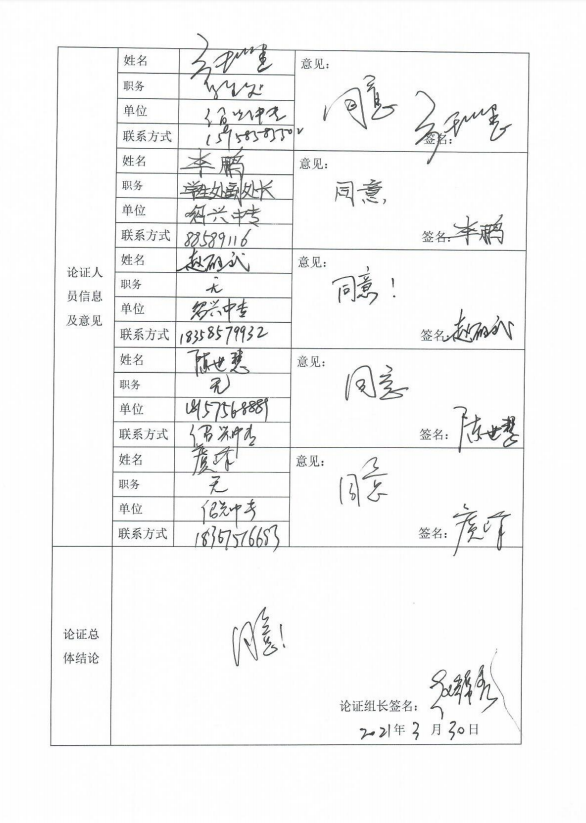 姓名
意见：
职务
同意
单位
联系方式
签名：
姓名 李鹏
意见：
职务 学生处副处长
同意，
单位 绍兴中专
联系方式 88589116
签名：李鹏
论证人
员信息
及意见
姓名
意见：
职务 无
同意！
单位 绍兴中专
联系方式 18358579932
签名：
姓名 陈世慧
意见：
职务 无
同意
单位
联系方式 绍兴中专
签名：陈世慧
姓名
意见：
职务 无
同意
单位 绍兴中专
联系方式 18367576683
签名：
论证总
体结论
同意！
论证组长签名：
2021年 3 月 30日